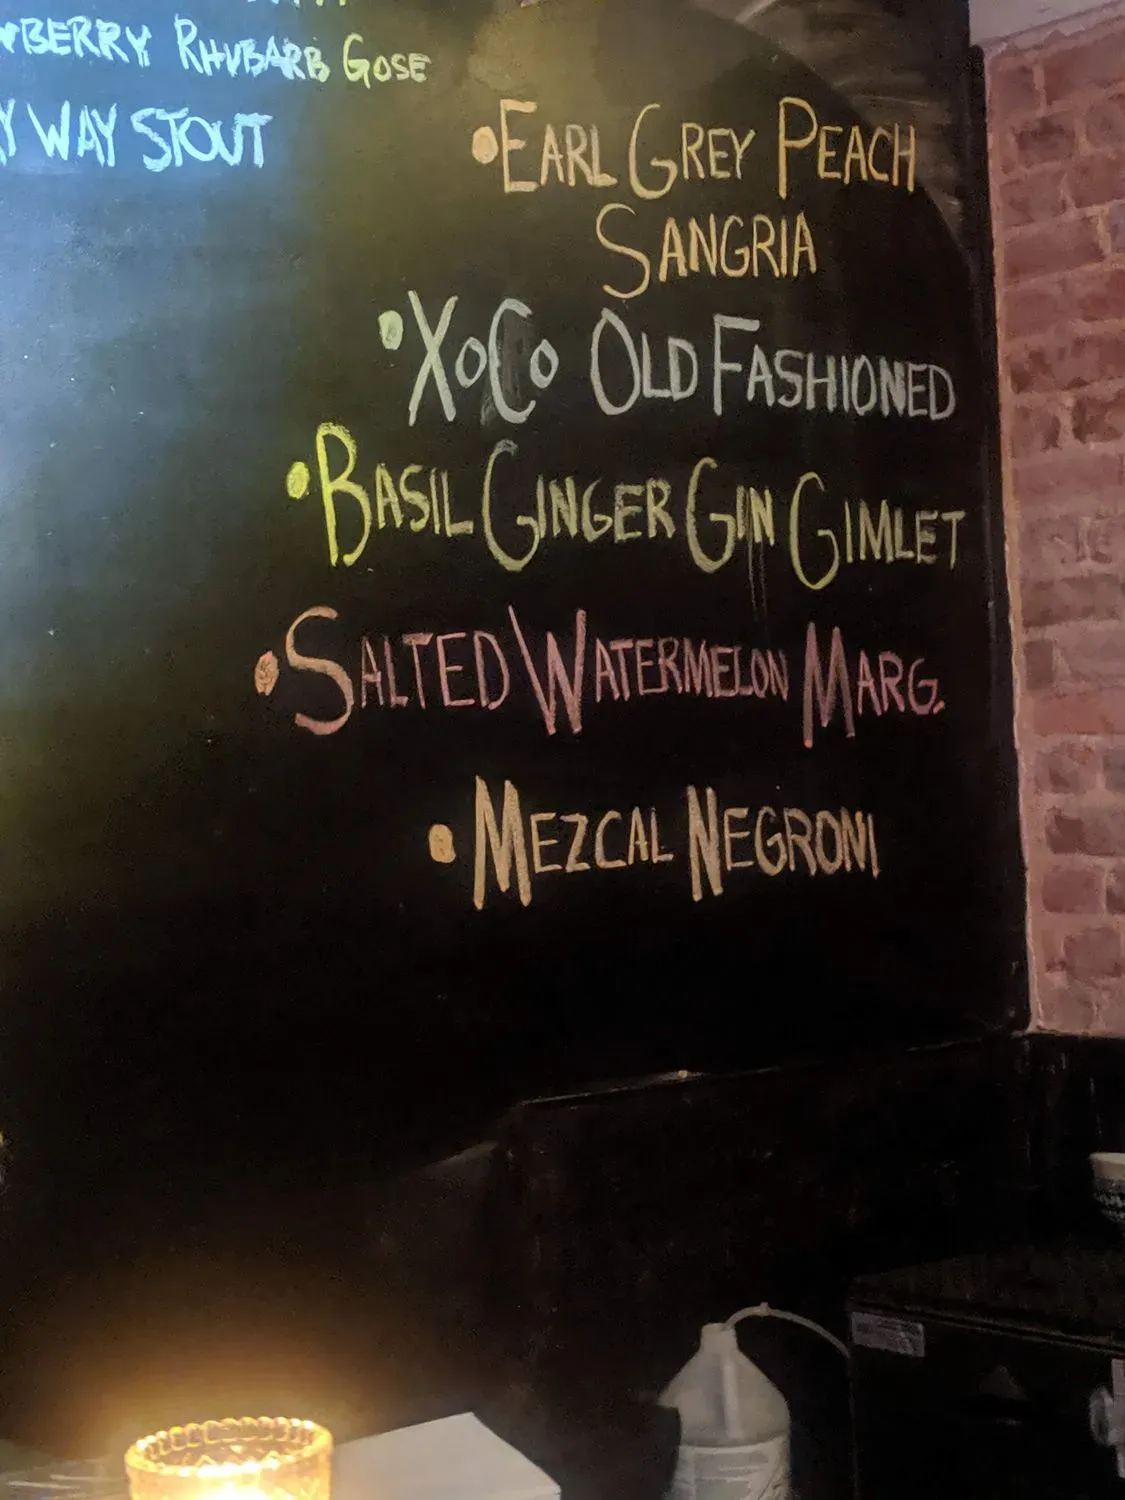 RHUBARB GOSE
WAY STOUT
• EARL GREY PEACH
SANGRIA
• XOCO OLD FASHIONED
• BASIL GINGER GIN GIMLET
• SALTED WATERMELON MARG.
• MEZCAL NEGRONI